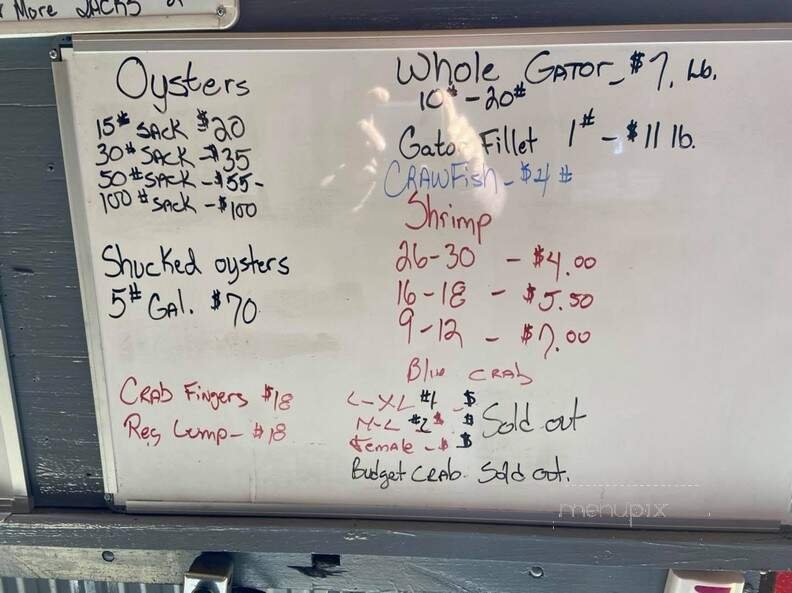 r More SACKS
Oysters
15# SACK $20
30# SACK - $35
50# SACK - $55-
100# SACK - $100
Shucked oysters
5# GAL. $70
CRAB Fingers $18
Reg Lump - $18
Whole GATOR - $7. Lb.
10# - 20#
Gator Fillet 1# - $11 lb.
CRAWFish - $4 #
Shrimp
26-30 - $4.00
16-18 - $5.50
9-12 - $7.00
Blue CRAB
L-XL #1 - $
M-L #2 $ $
Female - $ $
Sold out
Budget CRAB. Sold out.
menupix